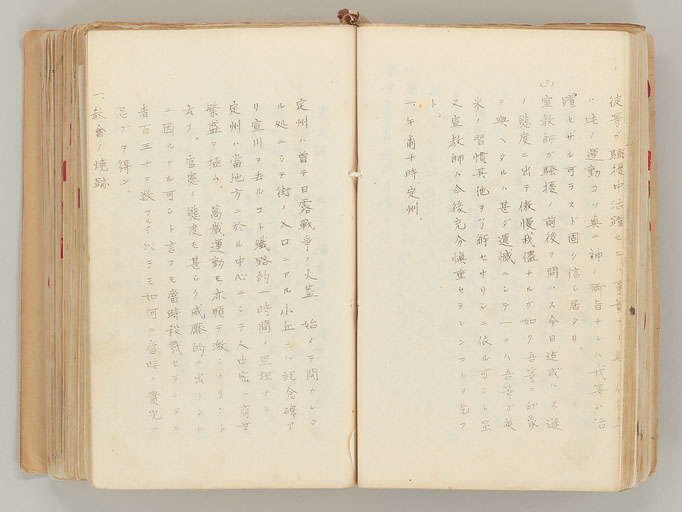 徒等ガ騒擾中活躍セシハ事実
ハ此ノ運動コソ真ニ神ノ御旨ナレハ我等ガ活
躍セザル可ラスト固ク信シ居タリ、
宣教師ガ騒擾ノ前後ヲ問ハス今日迄或ハ不遜
ノ態度ニ出テ傲慢我儘ナルガ如ク吾等ニ印象
ヲ與ヘタルハ甚ダ遺憾ニシテ一ニハ吾等ガ英
米ノ習慣其他ヲ了解セサリシニ依ル可シト虽
又宣教師ハ今後充分慎重セラレンコトヲ乞フ
ト、
一、午前十時定州、
定州ハ曽テ日露戦争ノ火蓋 始メテ開カレタ
ル処ニシテ街ノ入口ニアル小丘ニハ紀念碑ア
リ宣川ヲ去ルコト鐵路約一時間ノ里程ナリ、
定州ハ當地方ニ於ル中心ニシテ人口密ニ商業
繁盛ヲ極ム、萬歳運動モ亦頗ヲ激シカリシト
云フ。官憲ノ態度モ甚シク威壓的ニ出
ニ因ルナル可シト言フモ當時殺戮セラレタル
者百三十ヲ数 以テモ如何ニ當時ノ實況
忍ブヲ得ン。
一、教會ノ焼跡